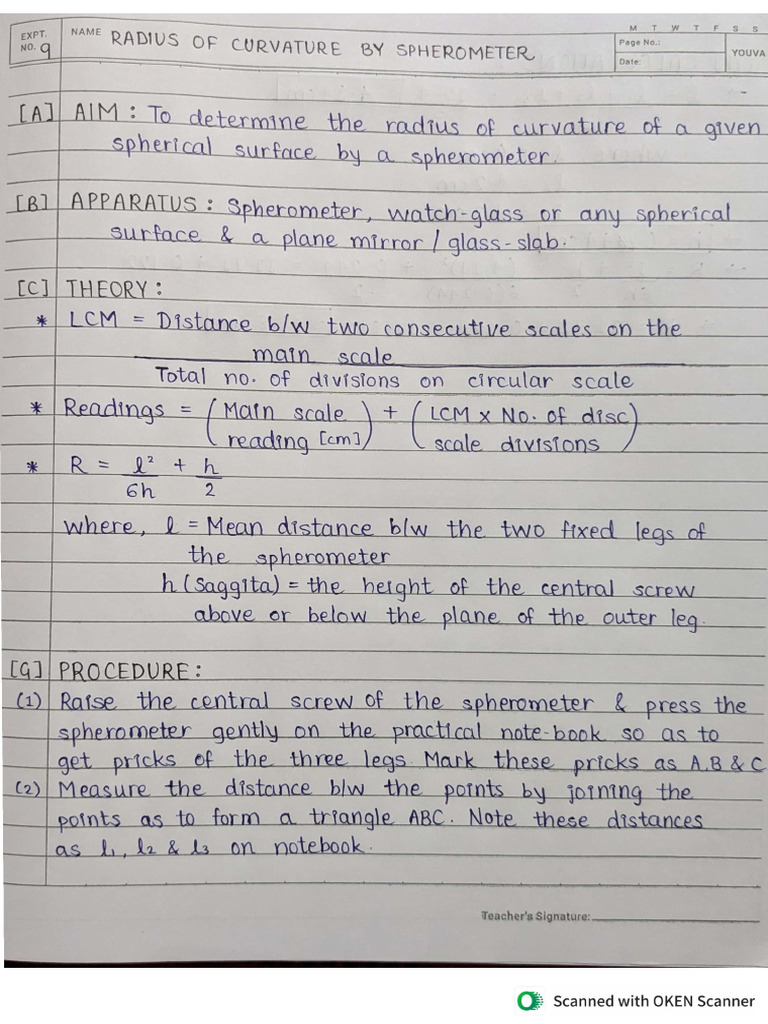 EXPT. NO. 9 NAME RADIUS OF CURVATURE BY SPHEROMETER
M T W T F S S
Page No.:
Date:
YOUVA
[A] AIM : To determine the radius of curvature of a given
spherical surface by a spherometer.
[B] APPARATUS : Spherometer, watch-glass or any spherical
surface & a plane mirror / glass-slab.
[C] THEORY :
* LCM = Distance b/w two consecutive scales on the
main scale
Total no. of divisions on circular scale
* Readings = (Main scale reading [cm]) + (LCM x No. of disc scale divisions)
* R = l²/6h + h/2
where, l = Mean distance b/w the two fixed legs of
the spherometer
h (Saggita) = the height of the central screw
above or below the plane of the outer leg.
[G] PROCEDURE :
(1) Raise the central screw of the spherometer & press the
spherometer gently on the practical note-book so as to
get pricks of the three legs. Mark these pricks as A,B & C
(2) Measure the distance b/w the points by joining the
points as to form a triangle ABC. Note these distances
as l₁, l₂ & l₃ on notebook.
Teacher's Signature:
Scanned with OKEN Scanner